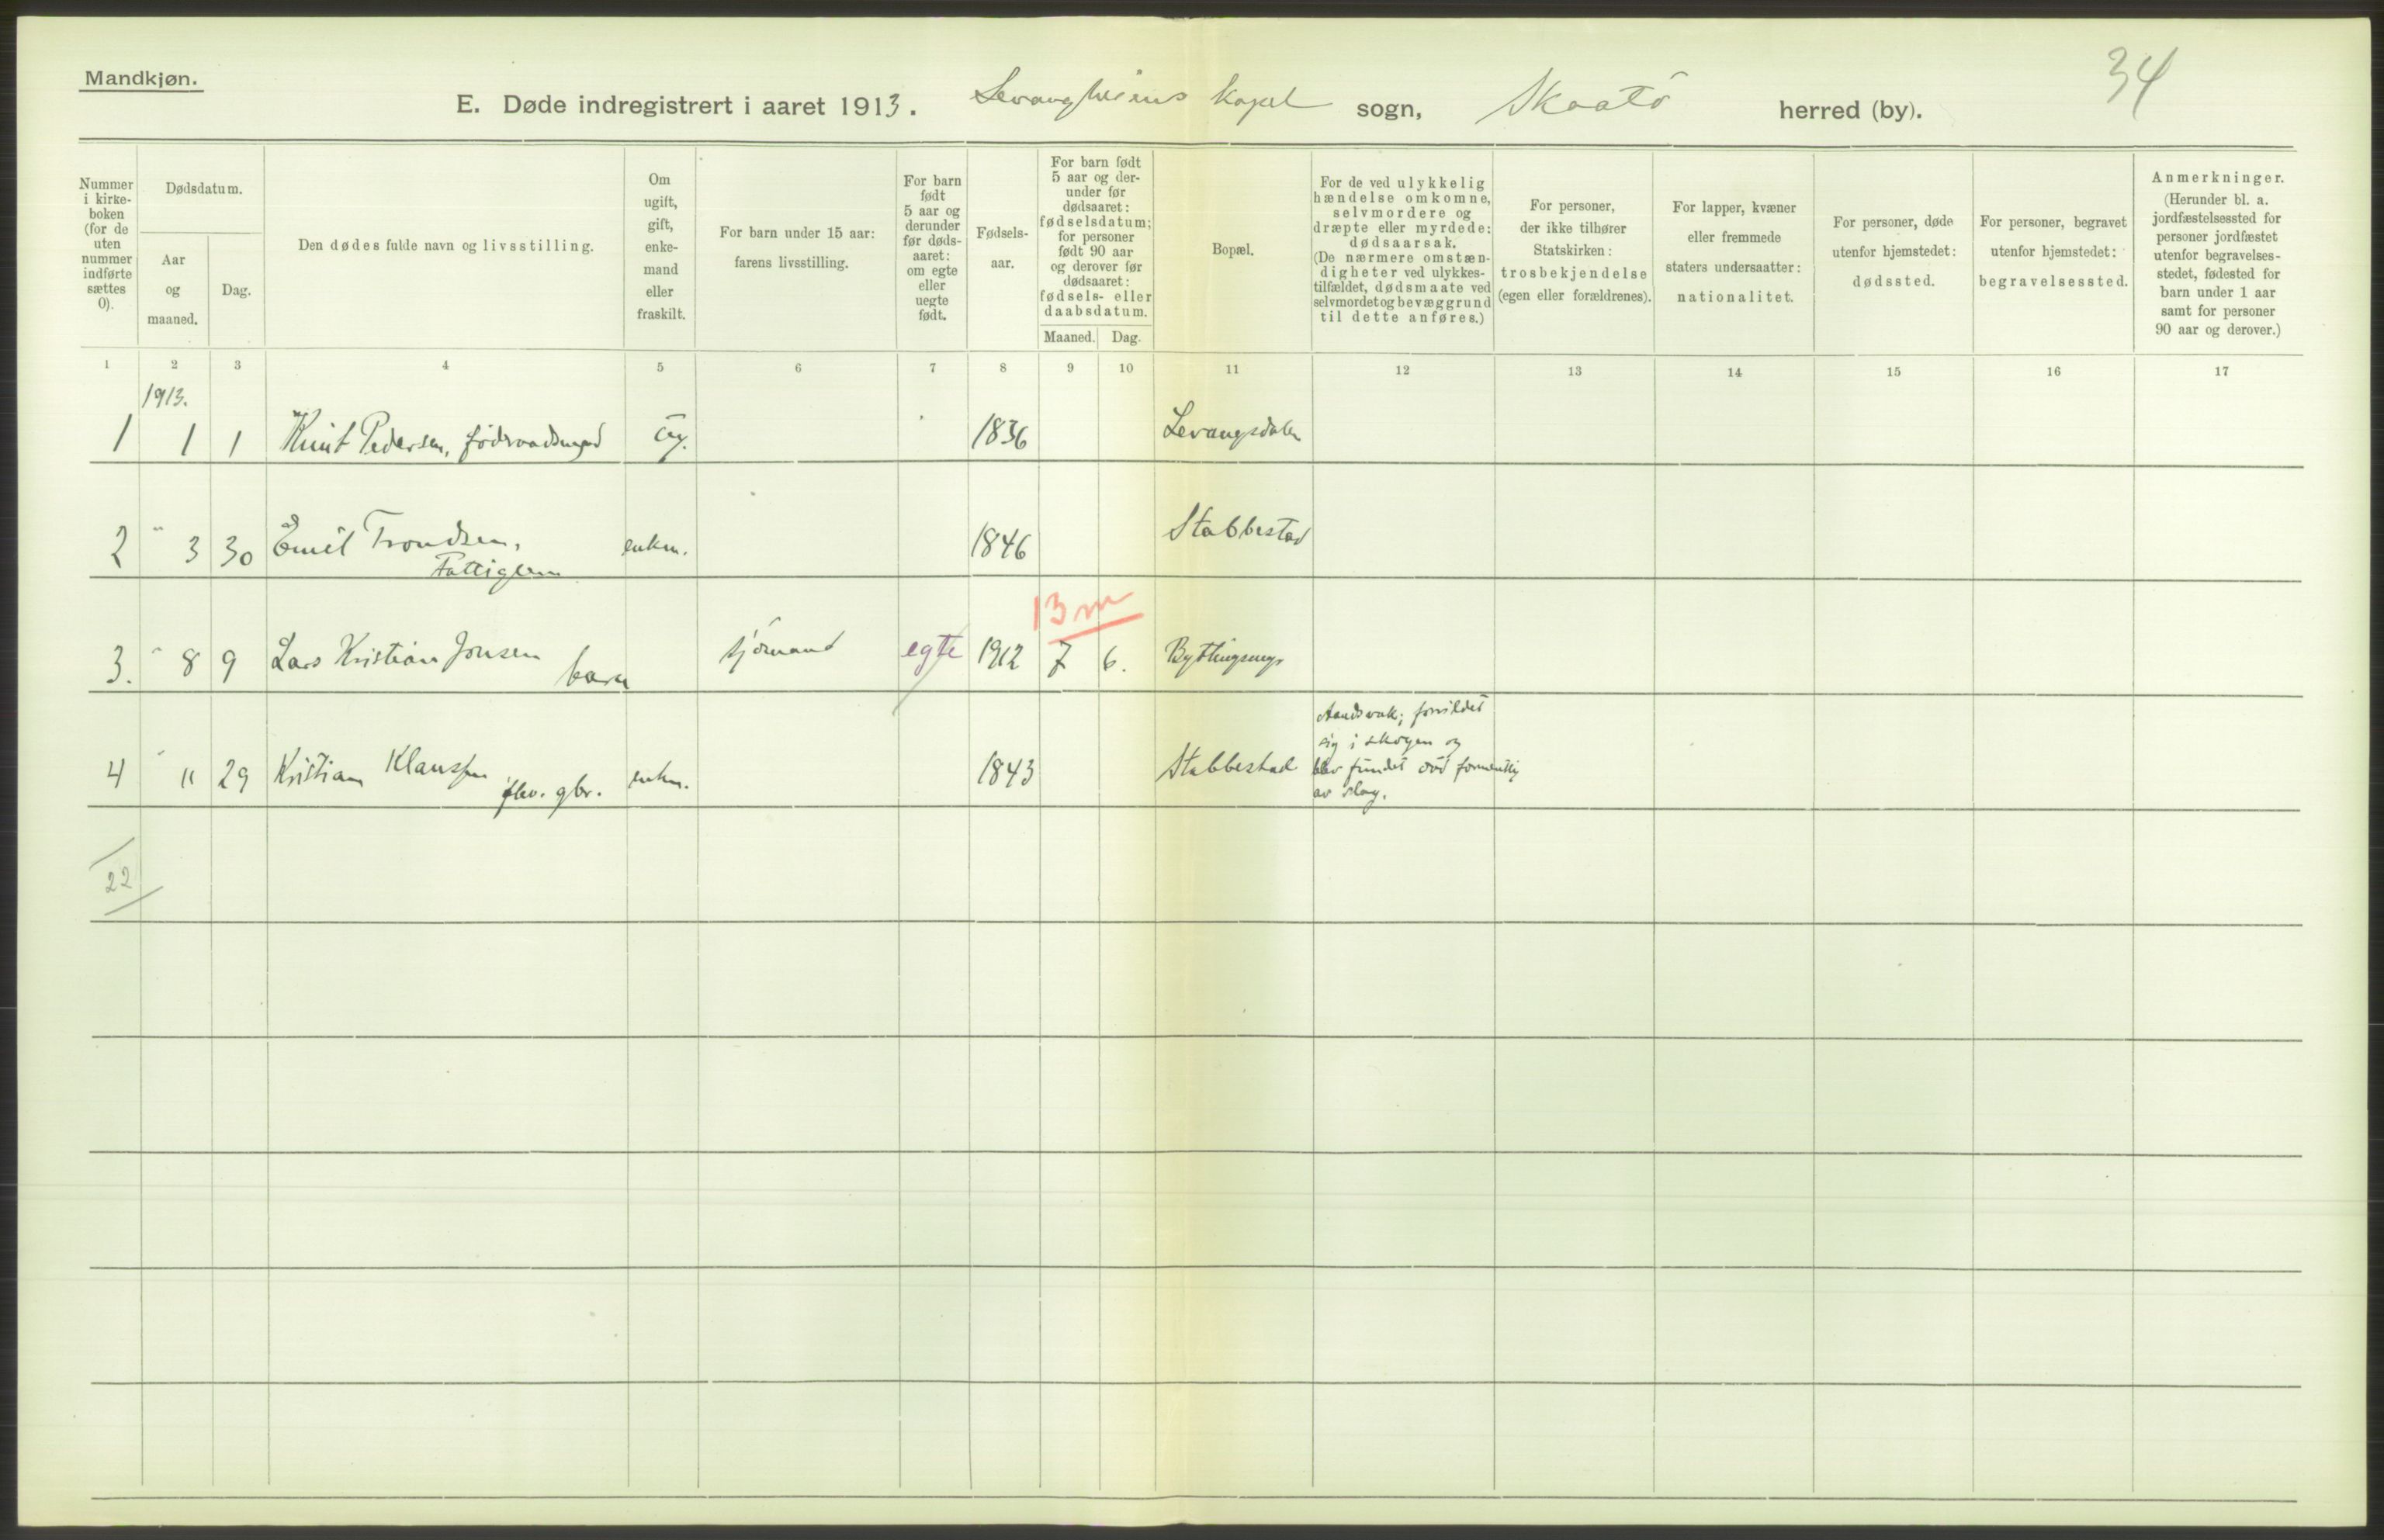 Mandkjøn.
34
E. Døde indregistrert i aaret 1913. Levangheiens kapel sogn, Skaatö herred (by).
Nummer i kirke-boken (for de uten nummer indførte sættes 0).
Dødsdatum.
Aar og maaned.
Dag.
Den dødes fulde navn og livsstilling.
Om ugift, gift, enke-mand eller fraskilt.
For barn under 15 aar: farens livsstilling.
For barn født 5 aar og derunder før døds-aaret: om egte eller uegte født.
Fødsels-aar.
For barn født 5 aar og der-under før dødsaaret: fødselsdatum; for personer født 90 aar og derover før dødsaaret: fødsels- eller daabsdatum.
Maaned. Dag.
Bopæl.
For de ved ulykkelig hændelse omkomne, selvmordere og dræpte eller myrdede: dødsaarsak. (De nærmere omstæn-digheter ved ulykkes-tilfældet, dødsmaate ved selvmordet og bevæggrund til dette anføres.)
For personer, der ikke tilhører Statskirken: trosbekjendelse (egen eller forældrenes).
For lapper, kvæner eller fremmede staters undersaatter: nationalitet.
For personer, døde utenfor hjemstedet: dødssted.
For personer, begravet utenfor hjemstedet: begravelsessted.
Anmerkninger. (Herunder bl. a. jordfæstelsessted for personer jordfæstet utenfor begravelses-stedet, fødested for barn under 1 aar samt for personer 90 aar og derover.)
1 2 3 4 5 6 7 8 9 10 11 12 13 14 15 16 17
1913.
1 1 1 Knut Pedersen, födraadsmand ug. 1836 Levangsdalen
2 " 3 30 Emil Trondsen, enkm. 1846 Stabbestad
Fattiglem
13 m
3. " 8 9 Lars Kristian Jonsen sjömand egte 1912 7 6.
barn
Aandsvak; forvildet
sig i skogen og
4 " 11 29 Kristian Klaussen enkm. 1843 Stabbestad blev fundet död formentlig
fhv. gbr. av slag.
22